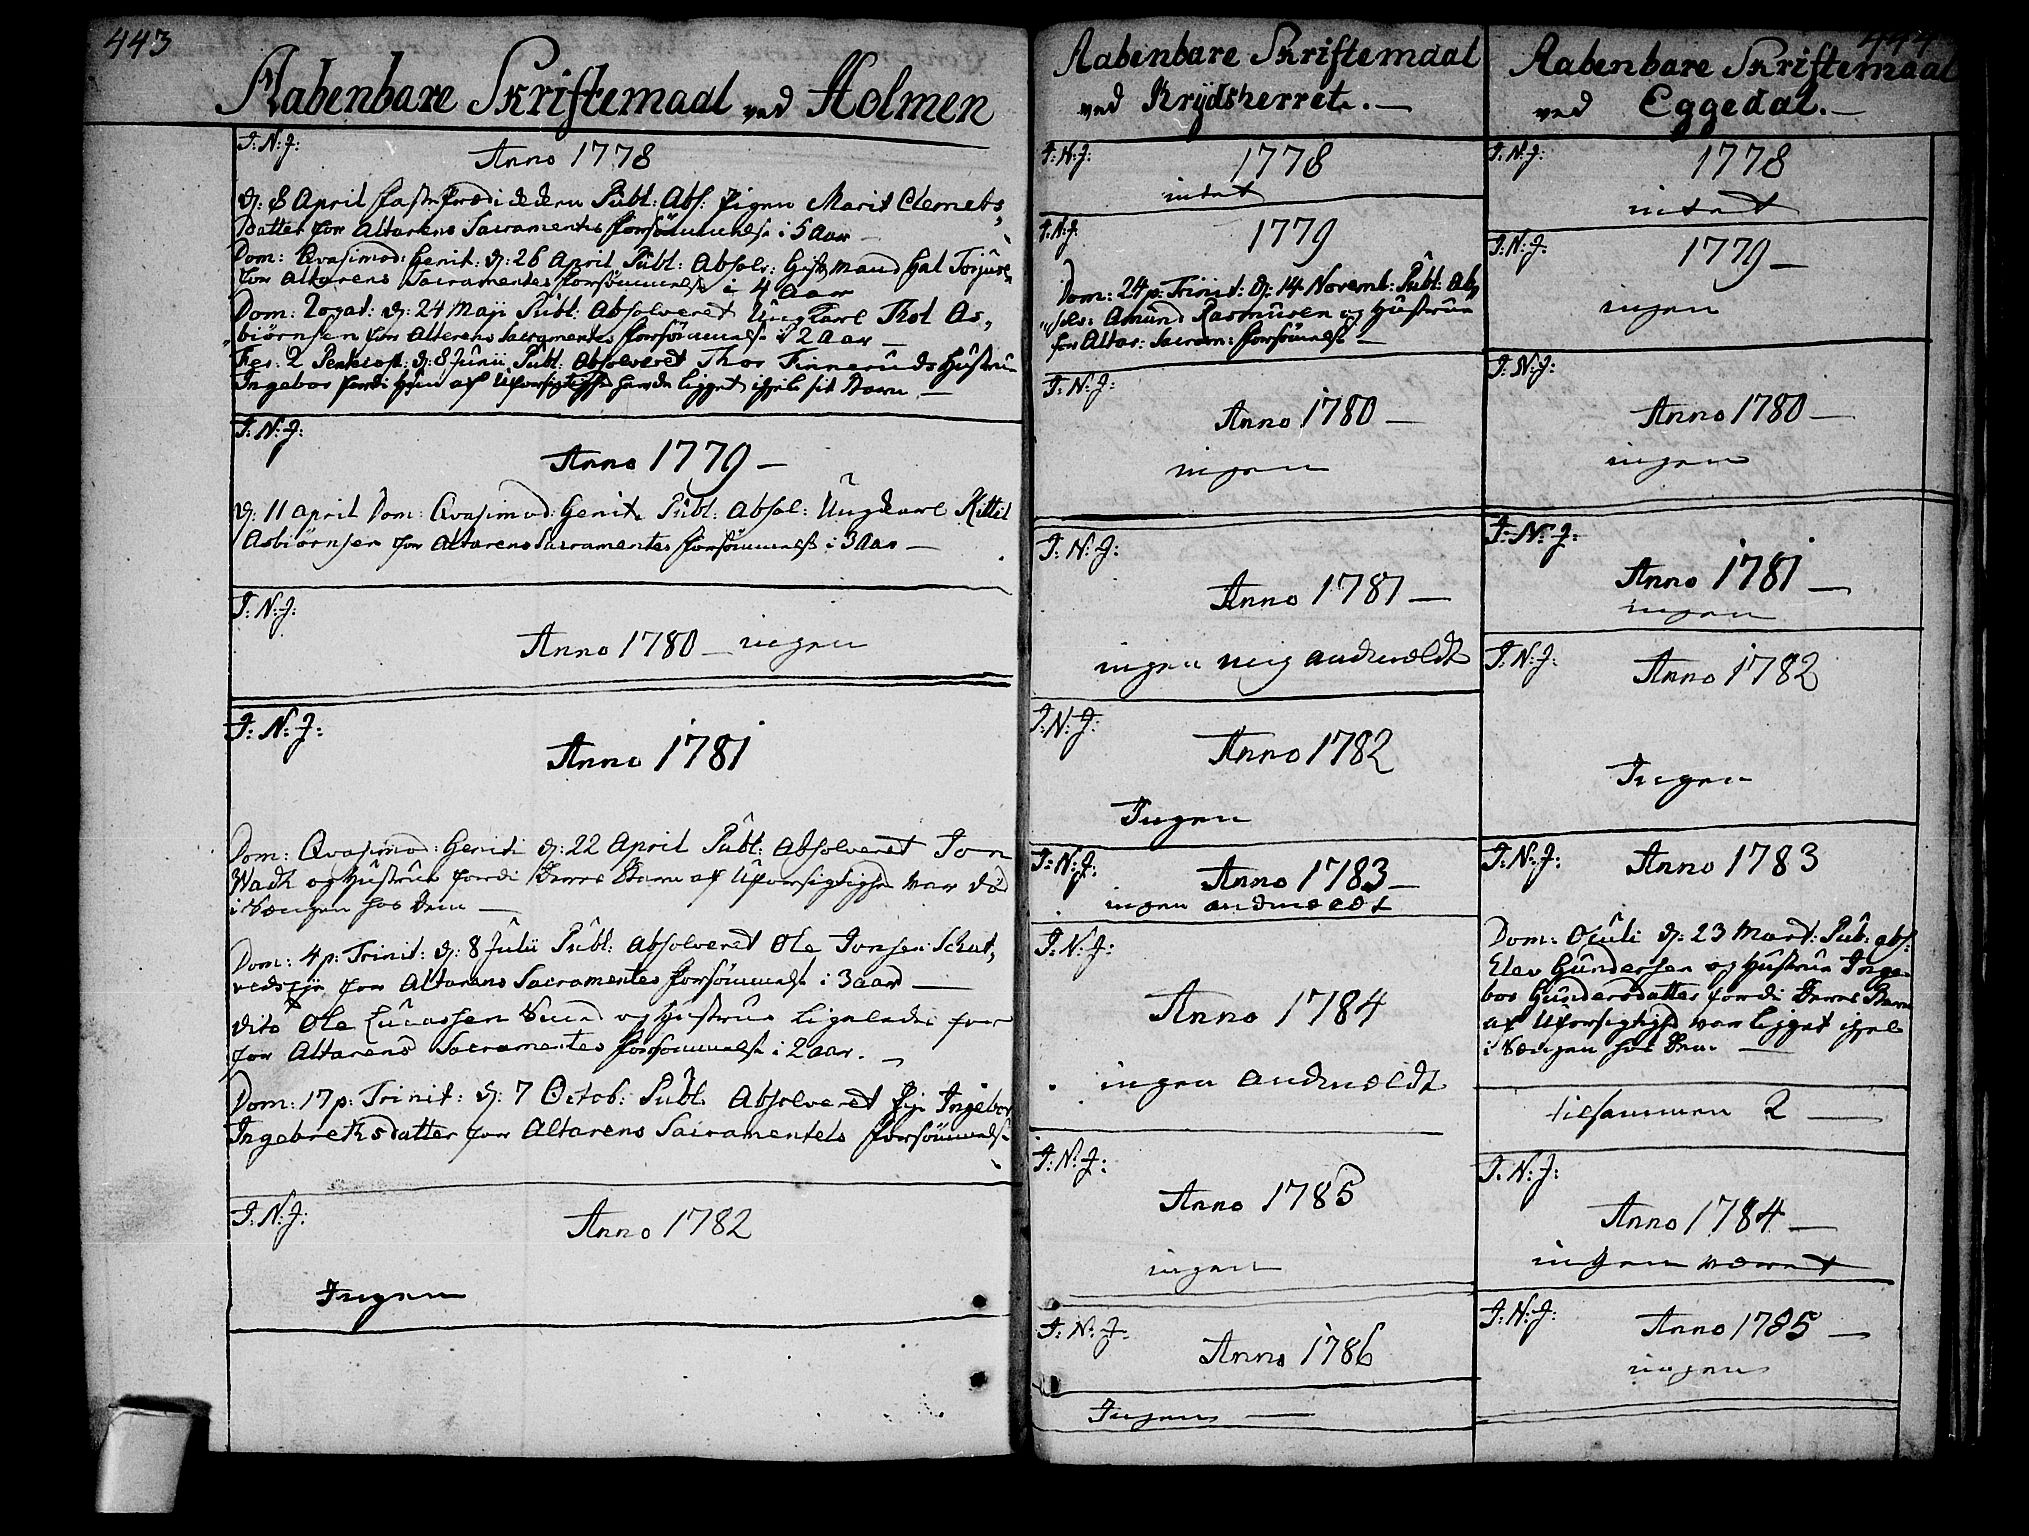 443
Aabenbare Skriftemaal ved Holmen
J: N: J:
Anno 1778
d: 8 April Publ: Abs: Pigen Marit Clemets,
datter for Altarens Sacramentes forsömmelse i 5 Aar
Dom: Qvasimod: Genit: d: 26 April Publ: Absolv:
for Altarens Sacramentes forsömmelse i 4 Aar
Dom: Rogat: d: 24 Maji Publ: Absolveret Ungkarl Thol As,
biörnsen for Altarens Sacramentes forsömmelse i 2 Aar —
Fer: 2 Pentecost: d: 8 Junii Publ: Absolveret Thor Finneruds Hustru
Ingebor fordi Hun af Uforsigtighed hafde ligget ihjel sit Barn —
J: N: J:
Anno 1779 —
d: 11 April Dom: Qvasimod: Genit: Publ: Absol: Ungkarl Kittil
Asbiörnsen for Altarens Sacramentes forsömmelse i 3 Aar —
J: N: J:
Anno 1780 — ingen
J: N: J:
Anno 1781
Dom: Qvasimod: Genit: d: 22 April Publ: Absolveret Jon
og Hustrue fordi Deres Barn af Uforsigtighed var död
i Sængen hos Dem —
Dom: 4 p: Trinit: d: 8 Julii Publ: Absolveret Ole Jonsen
for Altarens Sacramentes forsömmelse i 3 aar —
dito Ole Lucassen og Hustrue ligeledes for
for Altarens Sacramentes forsömmelse i 2 aar. —
Dom: 17 p: Trinit: d: 7 Octob: Publ: Absolveret Pige Ingebor
Ingebrethsdatter for Altarens Sacramentes forsömmelse
J: N: J:
Anno 1782
Ingen
Aabenbare Skriftemaal
ved Krydsherret. —
J: N: J:
1778
intet
J: N: J:
1779
Dom: 24 p: Trinit: d: 14 Novemb: Publ: Ab,
solv: Amund Rasmusen og Hustrue
for Altar: Sacram: forsömmelse —
J: N: J:
Anno 1780 —
ingen
J: N: J:
Anno 1781 —
ingen mig andmeldt
J: N: J:
Anno 1782
Ingen
J: N: J:
Anno 1783 —
ingen andmeldt
J: N: J:
Anno 1784
ingen andmeldt
J: N: J:
Anno 1785
ingen
J: N: J:
Anno 1786
Ingen —
444
Aabenbare Skriftemaal
ved Eggedal. —
J: N: J:
1778
intet
J: N: J:
1779 —
ingen
J: N: J:
Anno 1780 —
ingen
J: N: J:
Anno 1781 —
ingen
J: N: J:
Anno 1782
Ingen
J: N: J:
Anno 1783
Dom: Oculi d: 23 Mart: Pub: abs:
Elev Gundersen og Hustrue Inge-
bor Gundersdatter fordi Deres Barn
af Uforsigtighed var ligget ihjel
i Sængen hos Dem —
tilsammen 2 —
J: N: J:
Anno 1784 —
ingen været
J: N: J:
Anno 1785 —
ingen